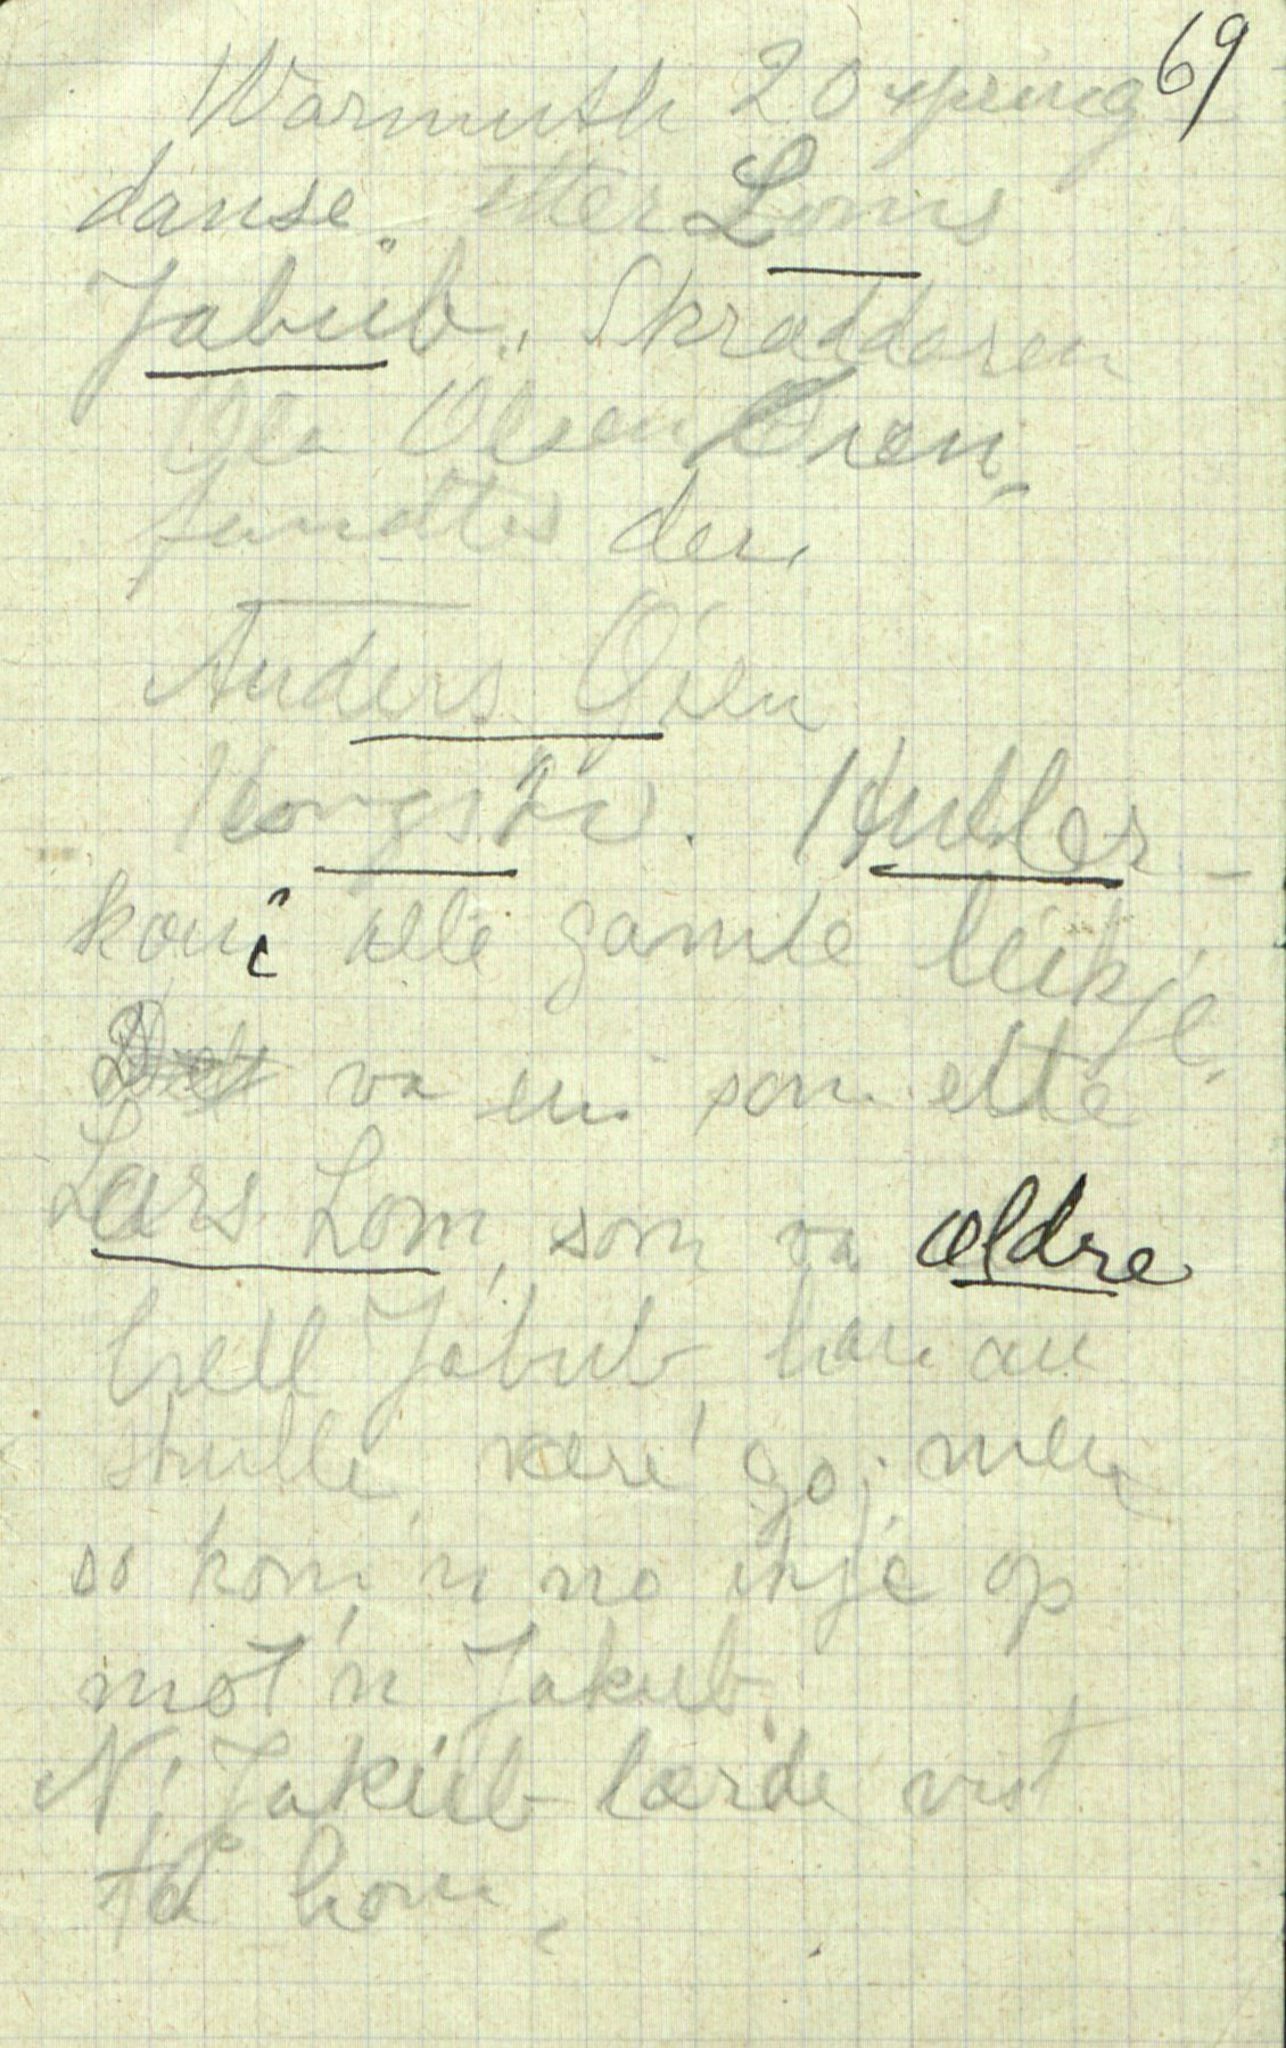 69
Warmuth 20 spring
danse. etter Loms
Jakub. Skrædderen
Ola Olsen Øien,
fandtes der.
Anders Øien
Hutler-
kom alle gamle leikje,
va ein som ette
Lars Lom, som va ældre
hell Jakub, han au
skulle vere go, men
so kom'n no ikje op
mot'n Jakub.
N' Jakub lærde vist
ta hom.